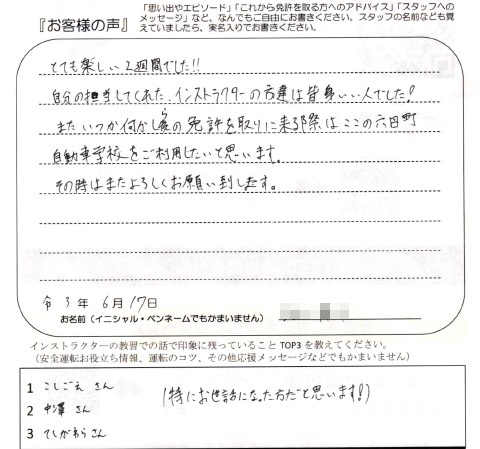 「思い出やエピソード」「これから免許を取る方へのアドバイス」「スタッフへの
『お客様の声』
メッセージ」など、なんでもご自由にお書きください。スタッフの名前なども覚
えていましたら、実名入りでお書きください。
とても楽しい2週間でした!!
自分の担当してくれた、インストラクターの方達は皆身いい人でした!
またいつか何かしらの免許を取りに来る際はここの六日町
自動車学校をご利用したいと思います。
その時はまたよろしくお願い致します。
令3年6月17日
お名前(イニシャル・ペンネームでもかまいません)
インストラクターの教習での話で印象に残っていること TOP3 を教えてください。
(安全運転お役立ち情報、運転のコツ、その他応援メッセージなどでもかまいません)
1 こしごえ さん
(特にお世話になった方だと思います!)
2 中澤 さん
3 てしがわらさん